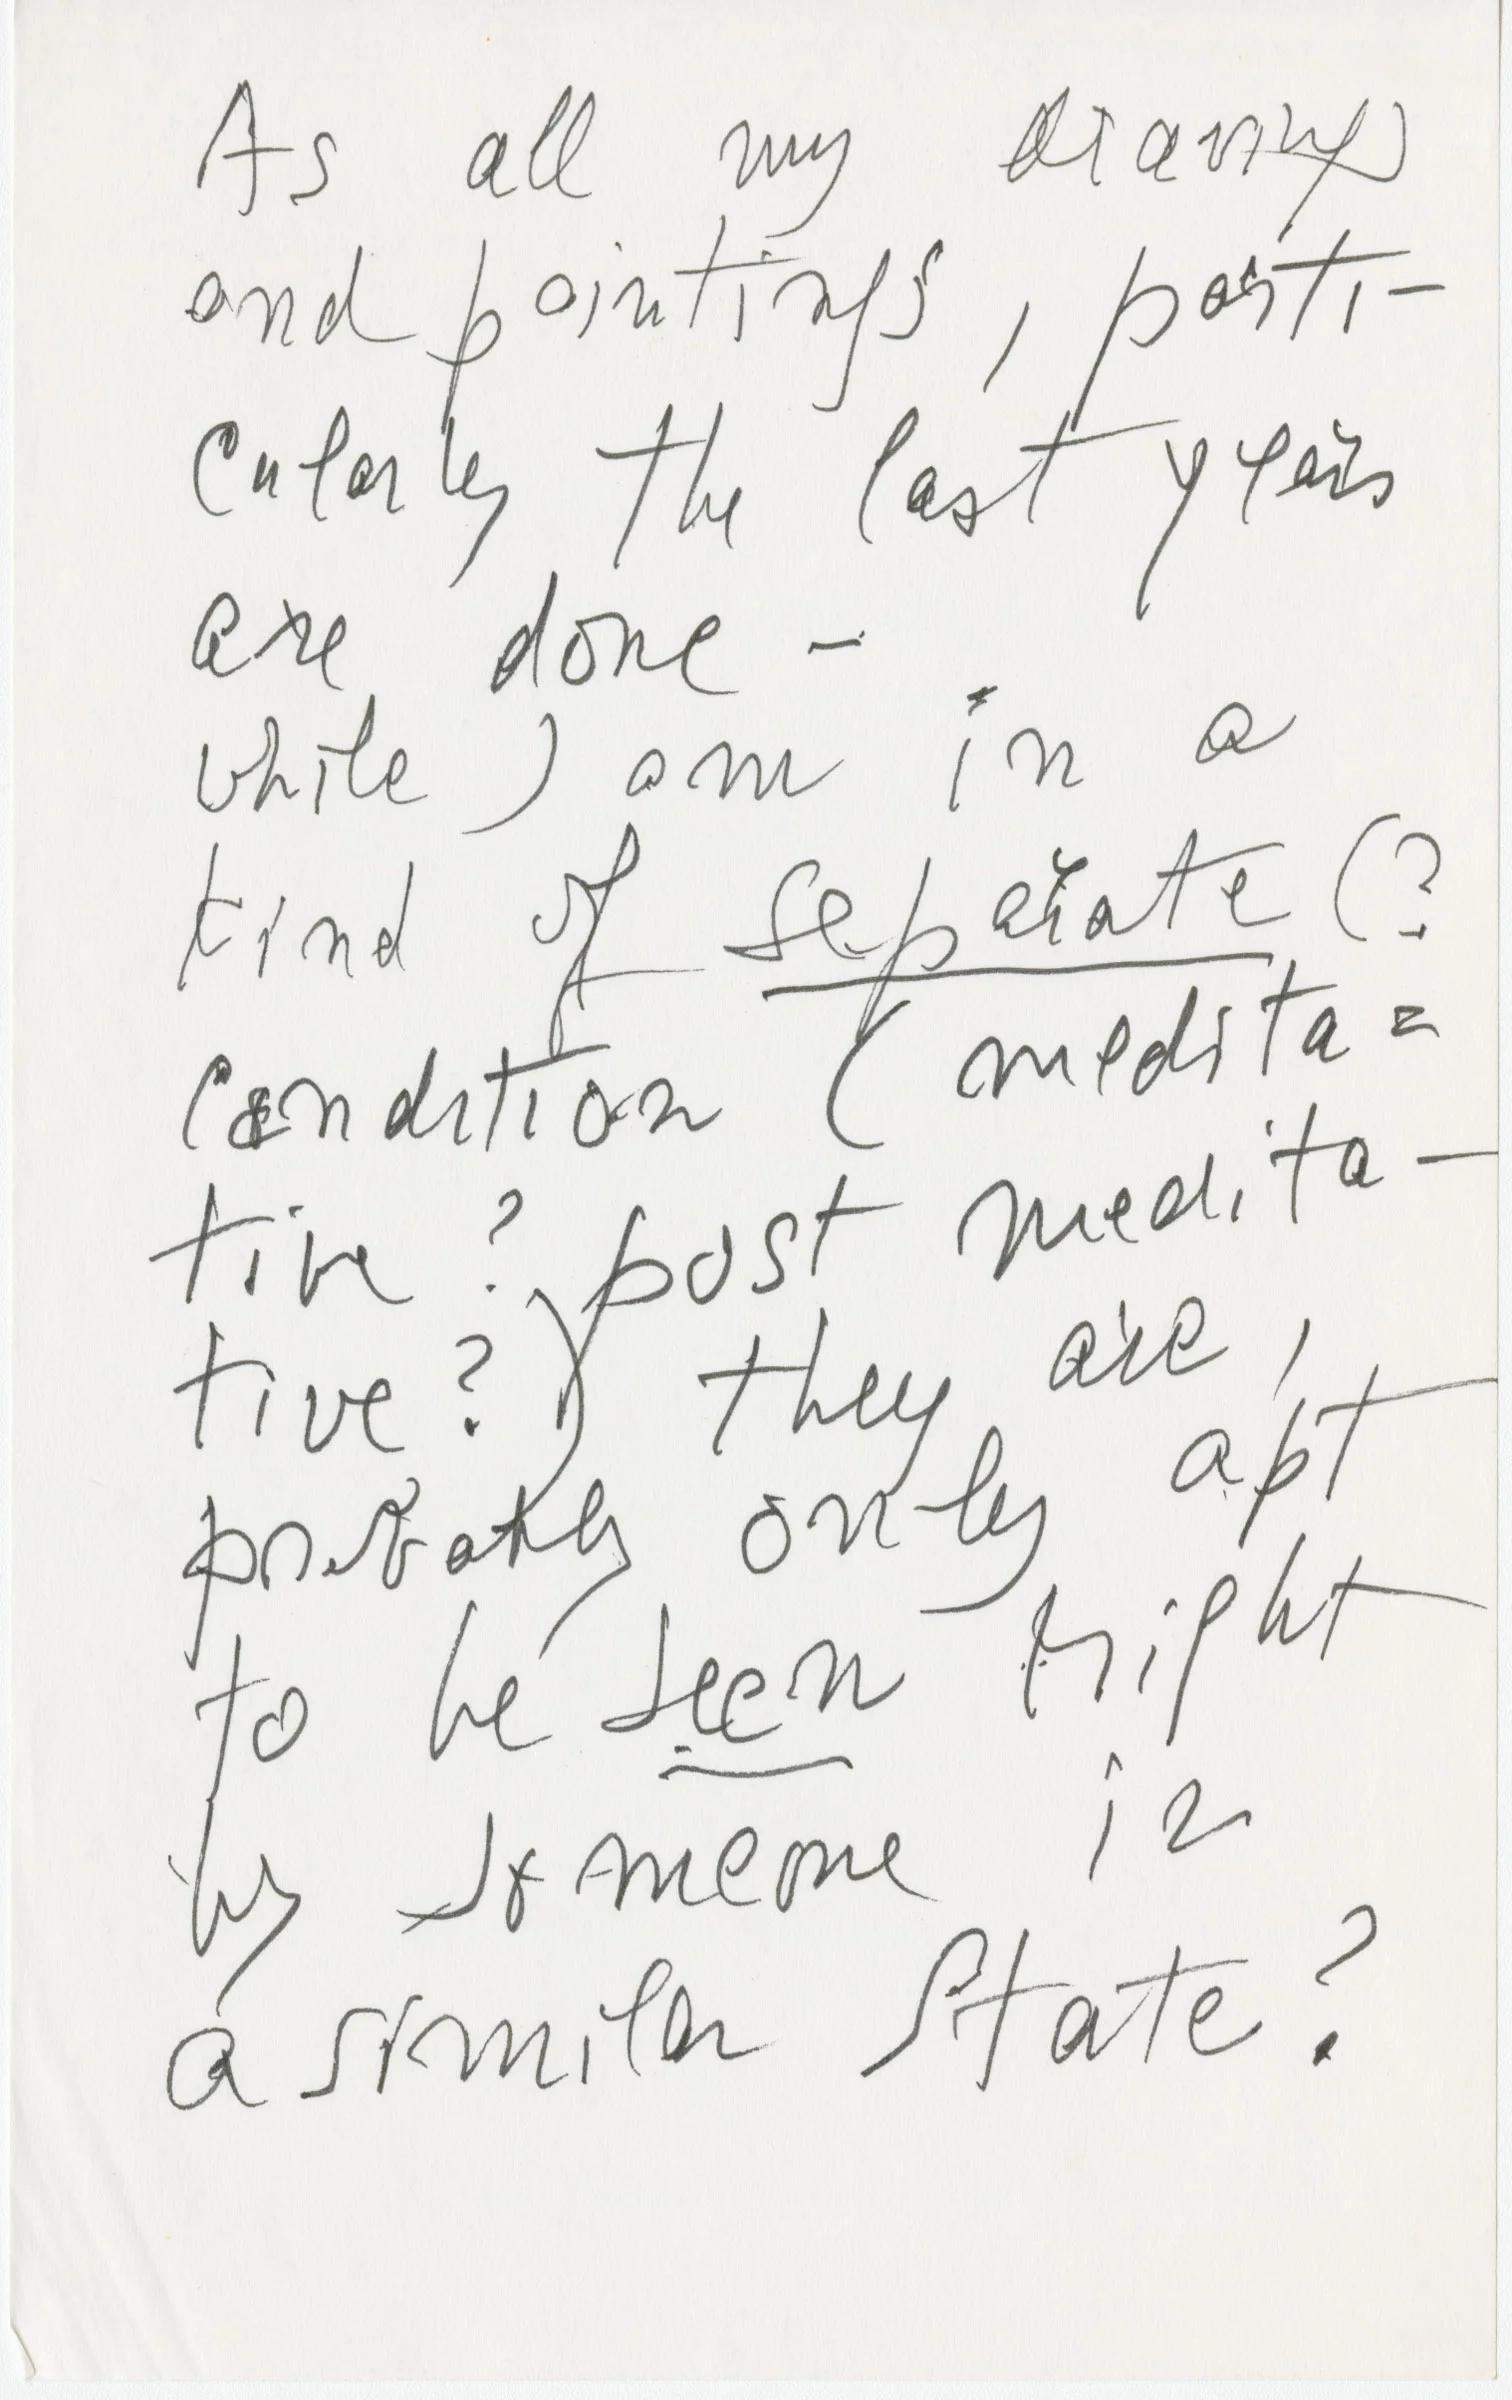 As all my drawings
and paintings, parti-
cularly the last years
are done -
while I am in a
kind of separate (?
condition (medita=
tive? post medita-
tive?) they are,
probably only apt
to be seen right
by someone in
a similar state?